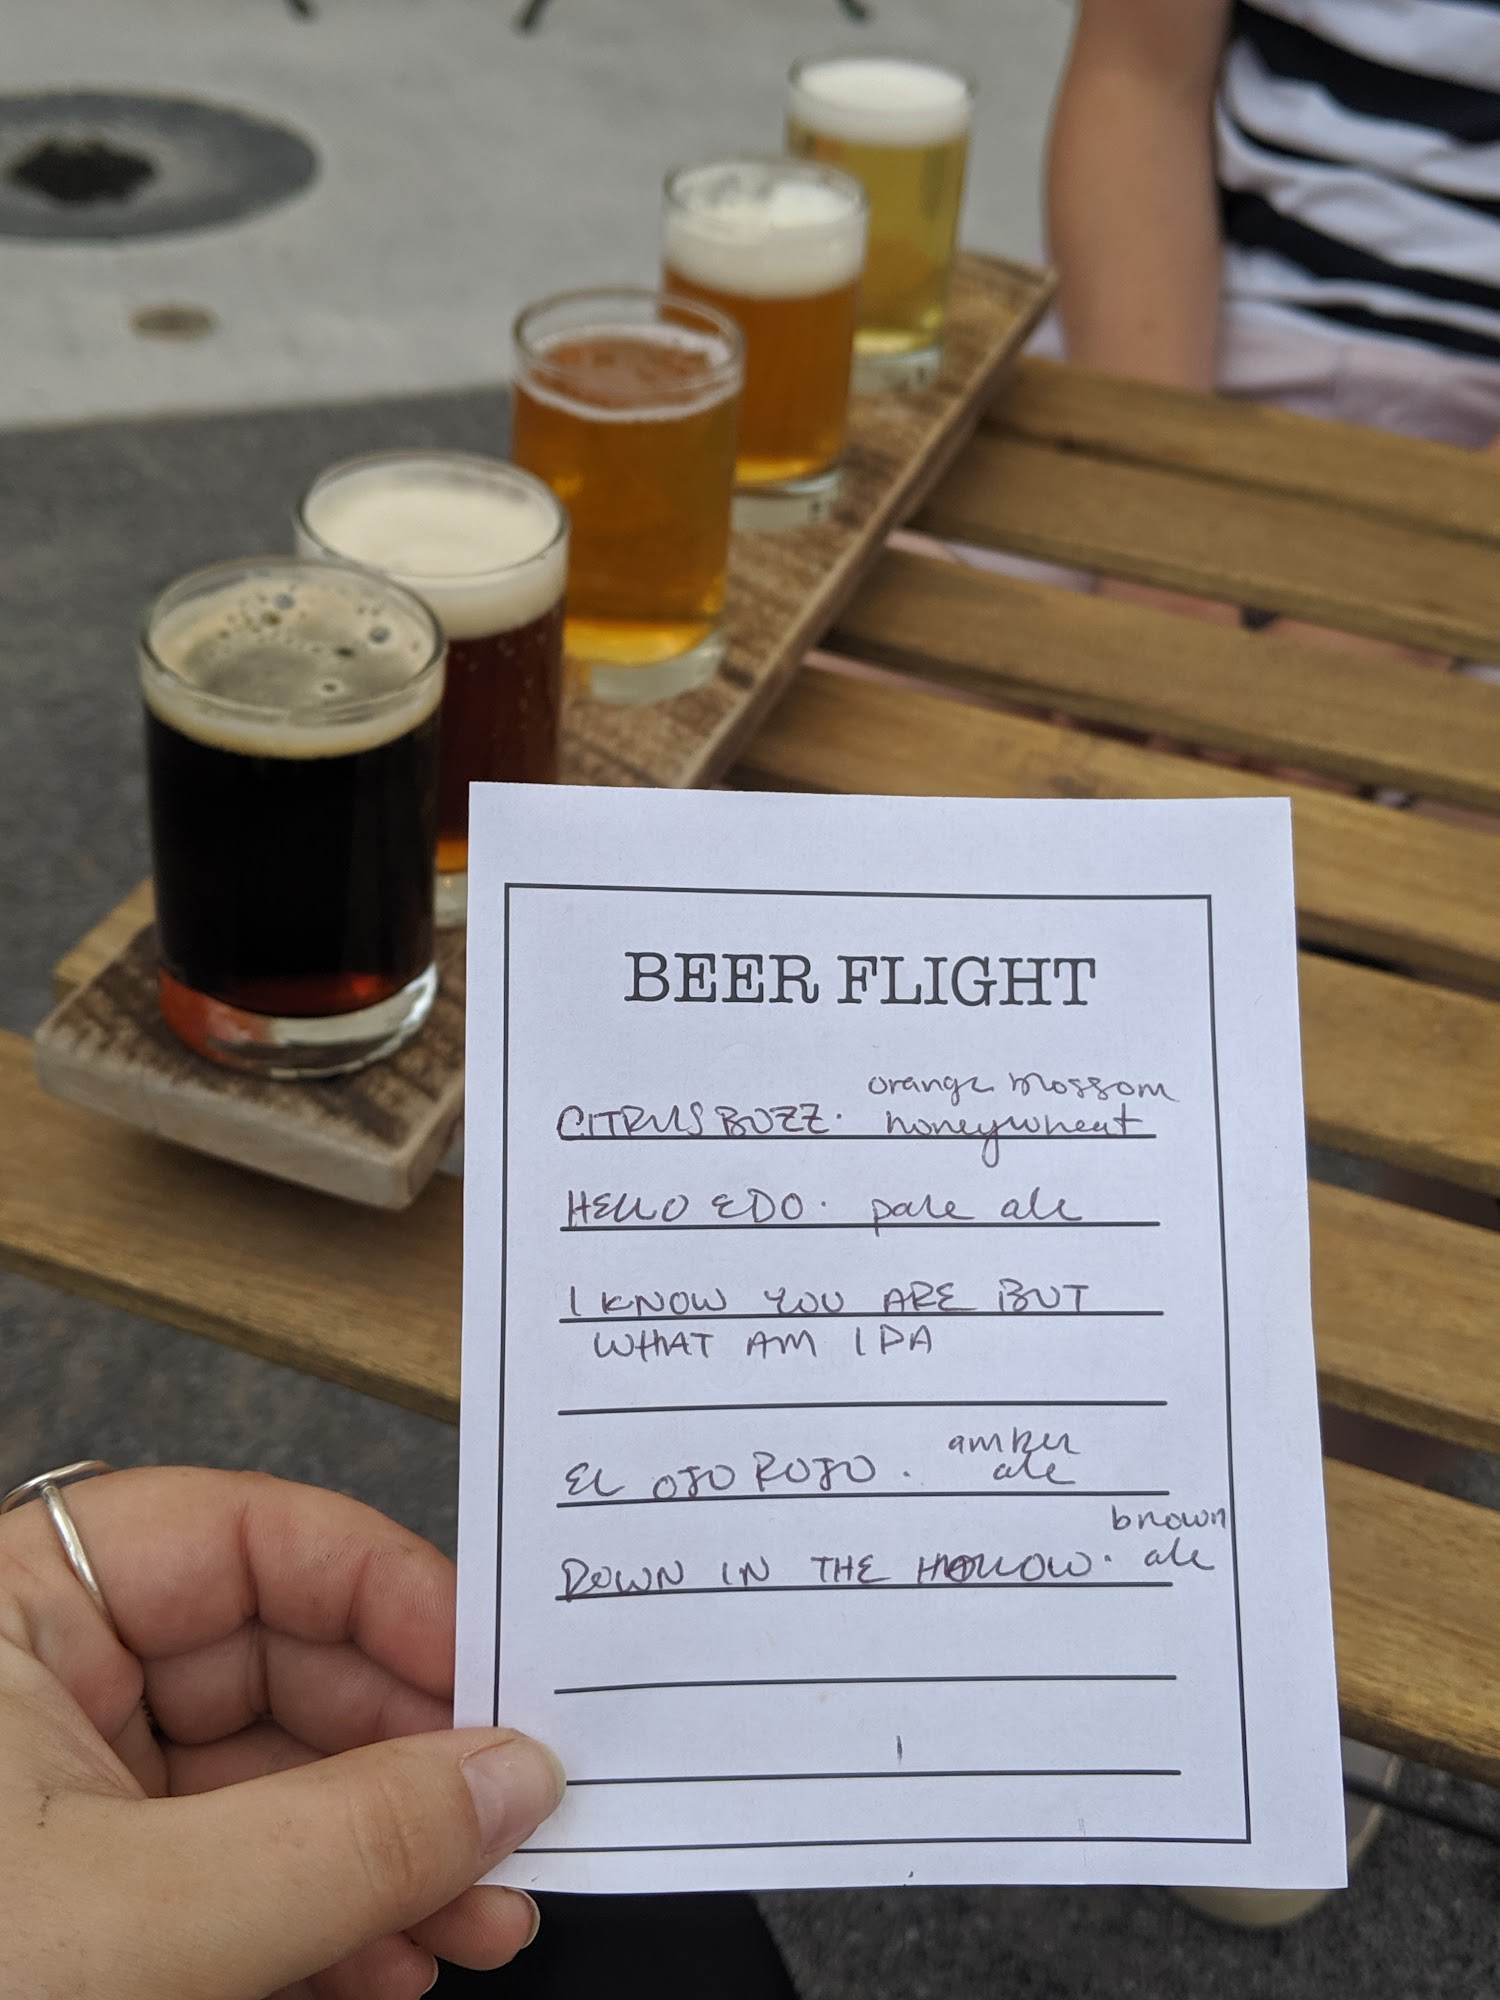 BEER FLIGHT
orange blossom
CITRUS BUZZ. honeywheat
HELLO EDO. pale ale
I KNOW YOU ARE BUT
WHAT AM IPA
amber
EL OJO ROJO. ale
brown
DOWN IN THE HOLLOW. ale